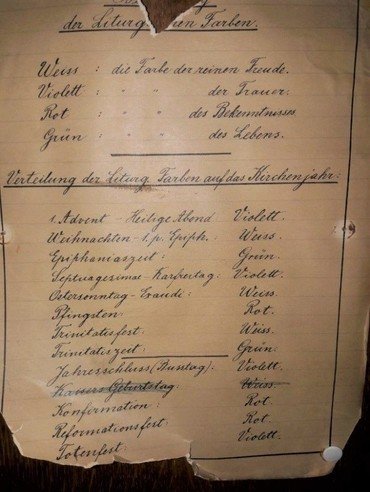 der Liturgischen Farben.
Weiss : die Farbe der reinen Freude.
Violett : " " der Trauer.
Rot : " " des Bekenntnisses.
Grün : " " des Lebens.
Verteilung der liturg. Farben auf das Kirchenjahr:
1. Advent - Heilige Abend Violett.
Weihnachten - 1. p. Epiph.: Weiss.
Epiphaniaszeit: Grün.
Septuagesimae - Karfreitag: Violett.
Ostersonntag - Exaude: Weiss.
Pfingsten: Rot.
Trinitatisfest: Weiss.
Trinitatiszeit: Grün.
Jahresschluss (Busstag): Violett.
Kaisers Geburtstag: Weiss.
Konfirmation: Rot.
Reformationsfest: Rot.
Totenfest: Violett.